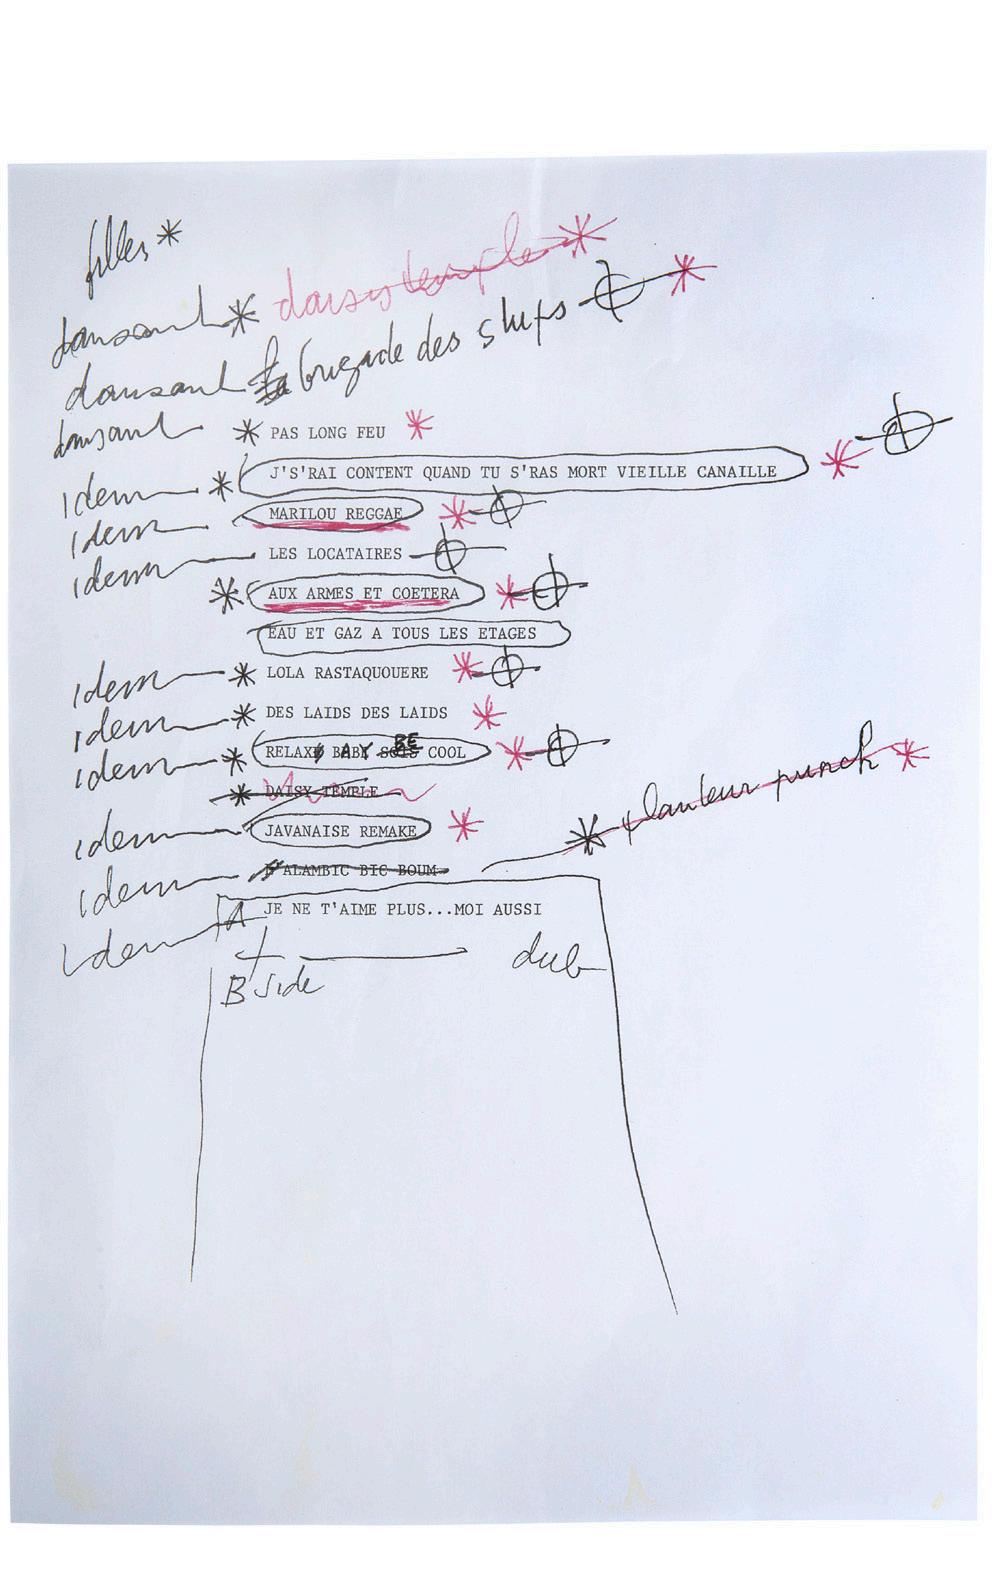 filles *
dansant * daisy temple *
dansant la brigade des stups *
dansant * PAS LONG FEU *
Idem * J'S'RAI CONTENT QUAND TU S'RAS MORT VIEILLE CANAILLE *
Idem MARILOU REGGAE *
Idem LES LOCATAIRES
* AUX ARMES ET COETERA *
EAU ET GAZ A TOUS LES ETAGES
Idem * LOLA RASTAQUOUERE *
Idem * DES LAIDS DES LAIDS *
Idem * RELAX BABY BE COOL *
* DAISY TEMPLE
Idem JAVANAISE REMAKE * * planteur punch *
Idem ALAMBIC BIC BOUM
Idem A JE NE T'AIME PLUS...MOI AUSSI
B side dub